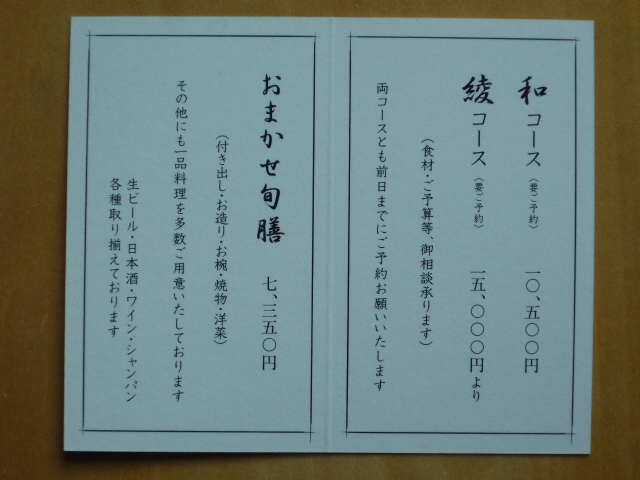 和コース（要ご予約）　一〇、五〇〇円
綾コース（要ご予約）　一五、〇〇〇円より
（食材・ご予算等、御相談承ります）
両コースとも前日までにご予約お願いいたします
おまかせ旬膳　七、三五〇円
（付き出し・お造り・お椀・焼物・洋菜）
その他にも一品料理を多数ご用意いたしております
生ビール・日本酒・ワイン・シャンパン
各種取り揃えております